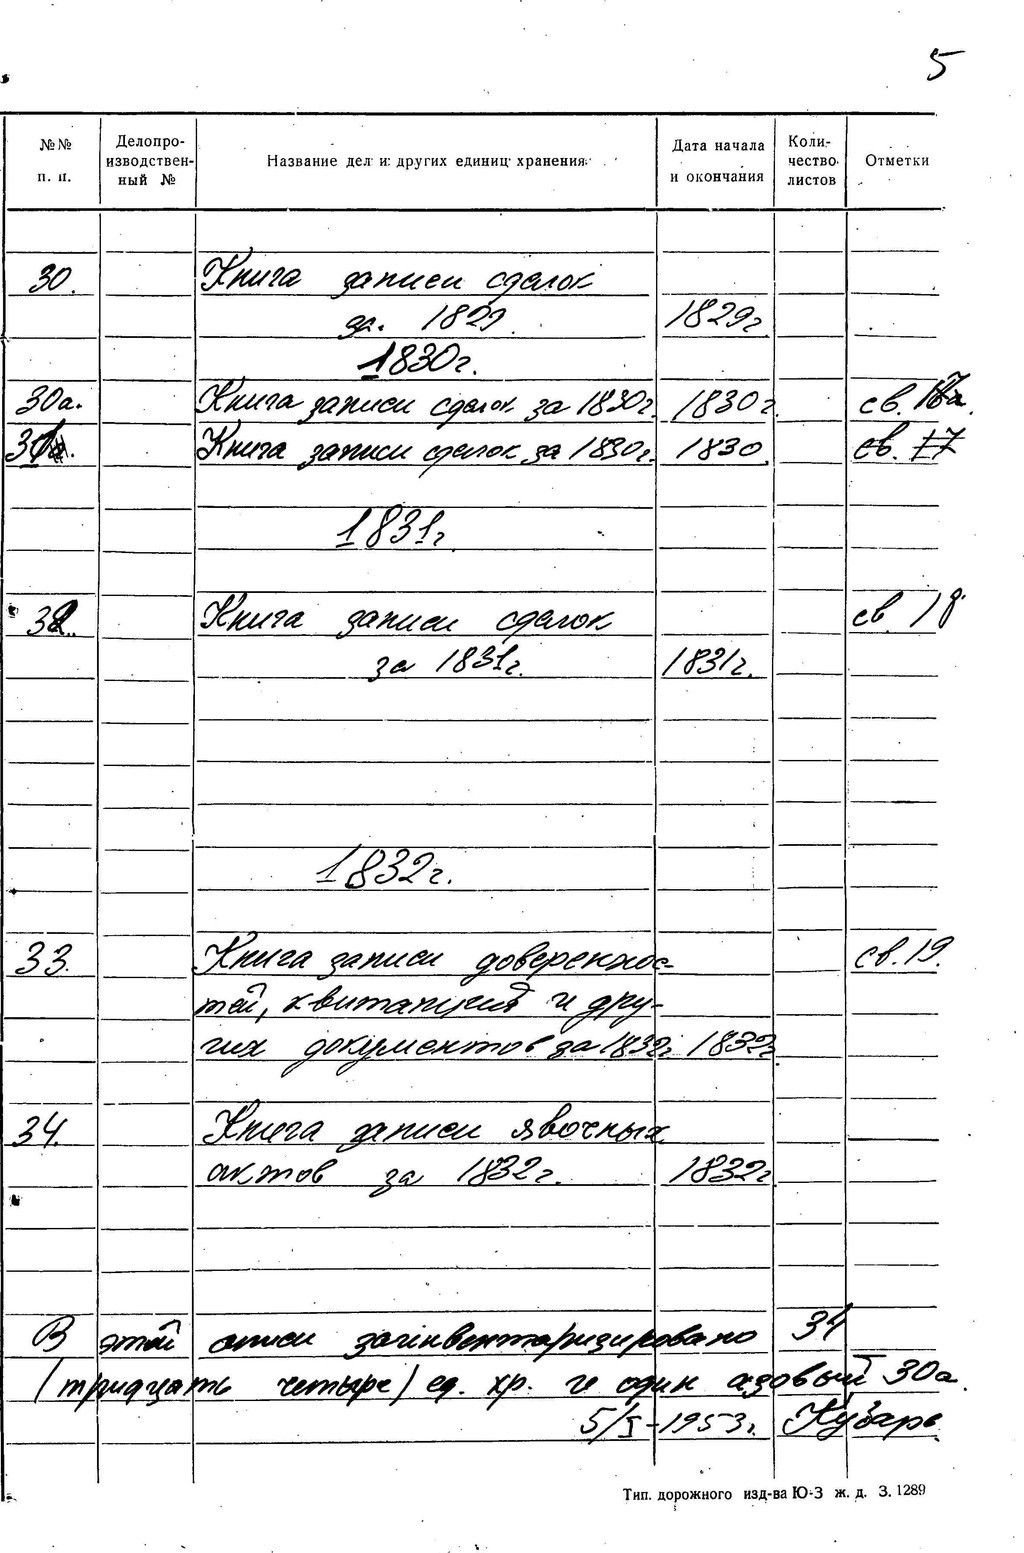 5
№№ п. п. Делопроизводствен-ный № Название дел и других единиц хранения Дата начала и окончания Коли-чество листов Отметки
30. Книга записи сделок
за. 1829. 1829г
1830г.
30а. Книга записи сделок за 1830г. 1830г св. 17а.
31. Книга записи сделок за 1830г. 1830. св. 17
1831г.
32. Книга записи сделок св. 18
за 1831г. 1831г.
1832г.
33. Книга записи довереннос- св. 19.
тей, квитанций и дру-
гих документов за 1832г. 1832г
34. Книга записи явочных
актов за 1832г. 1832г
В этой описи заинвентаризировано 34
(тридцать четыре) ед. хр. и один азовый 30а.
5/I-1953г.
Тип. дорожного изд-ва Ю-З ж. д. З. 1289